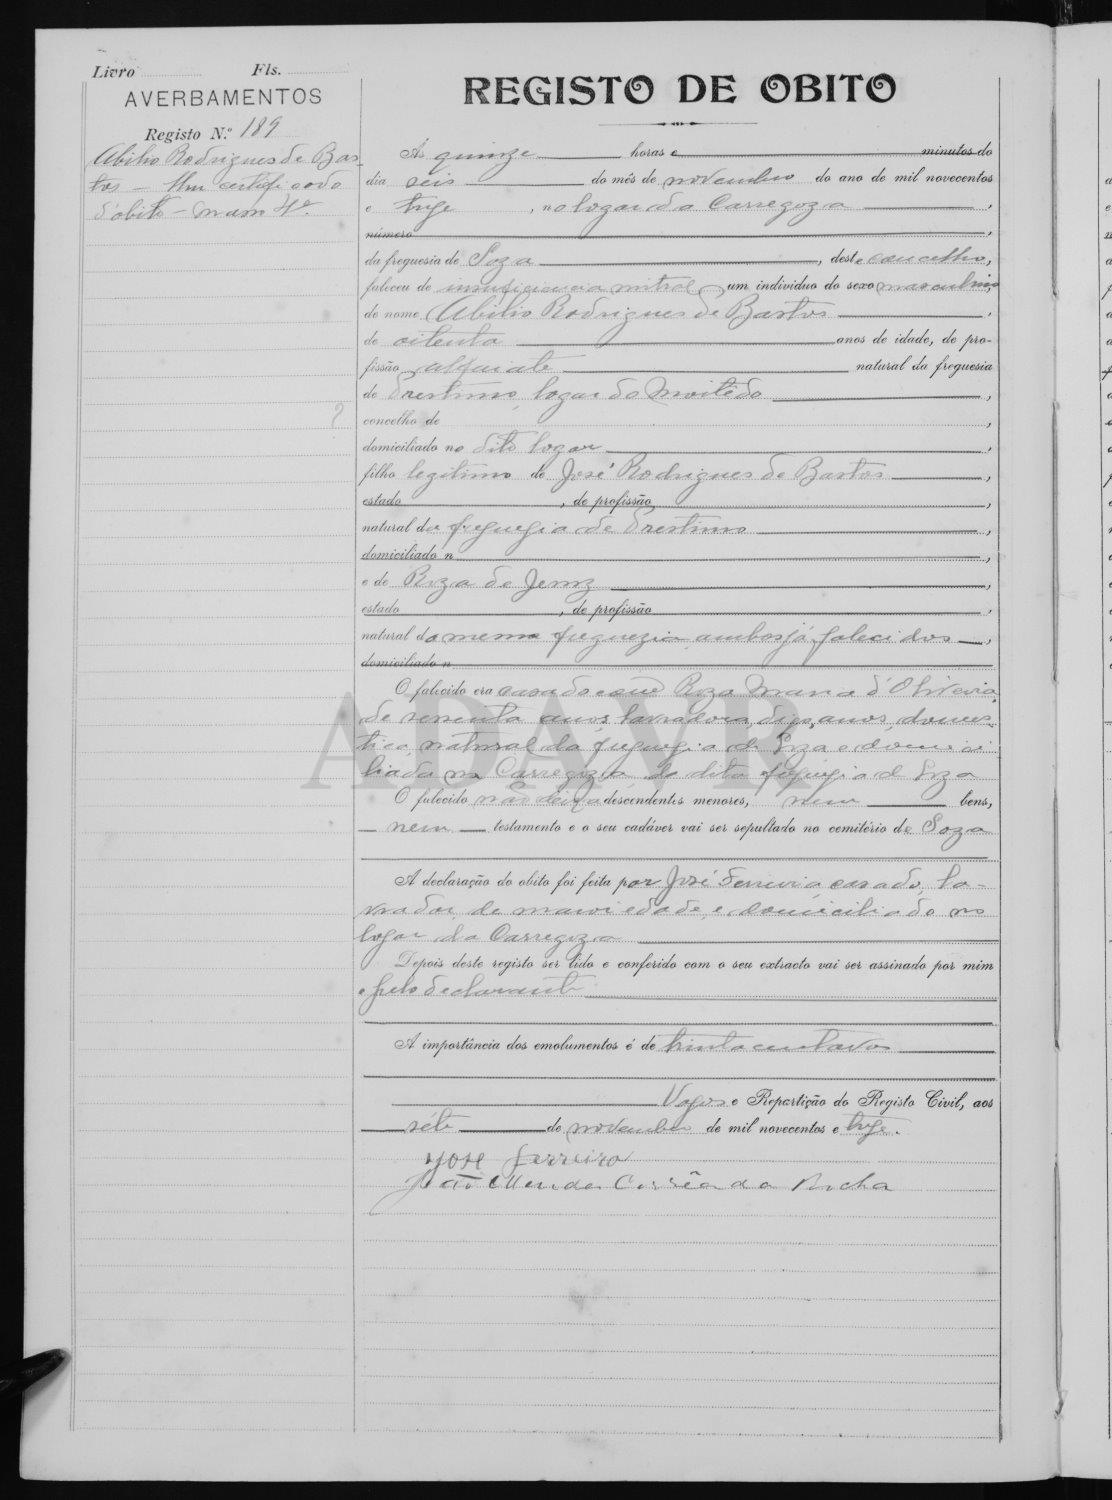 Livro Fls.
AVERBAMENTOS
Registo N.º 189
Abilio Rodrigues de Bas-
tos – Um certificado
d'obito – num 4º.
REGISTO DE OBITO
Ás quinze horas e minutos do
dia seis do mês de novembro do ano de mil novecentos
e treze, no logar da Carregoza,
número,
da freguesia de Soza, deste concelho,
faleceu de insuficiencia mitral, um individuo do sexo masculino,
de nome Abilio Rodrigues de Bastos,
de oitenta anos de idade, de pro-
fissão alfaiate natural da freguesia
de Prestimo, logar do Moitêdo,
concelho de,
domiciliado no dito logar,
filho legitimo de José Rodrigues de Bastos,
estado, de profissão,
natural da freguezia de Prestimo,
domiciliado n,
e de Roza de Jemz,
estado, de profissão,
natural da mesma freguezia, ambos já falecidos,
domiciliado n
O falecido era casado com Roza Maria d'Oliveira,
de sessenta anos, lavradora, digo, anos, domes-
tica, natural da freguezia de Soza e domici-
liada na Carregoza, da dita freguezia de Soza
O falecido não deixa descendentes menores, nem bens,
nem testamento e o seu cadáver vai ser sepultado no cemitério de Soza
A declaração do obito foi feita por José Ferreira, casado, la-
vrador, de maior edade, e domiciliado no
logar da Carregoza
Depois deste registo ser lido e conferido com o seu extracto vai ser assinado por mim
e pelo declarante
A importância dos emolumentos é de trinta centavos
Vagos e Repartição do Registo Civil, aos
sete de novembro de mil novecentos e treze.
José Ferreira
João Mendes Corrêa da Rocha
ADAVR